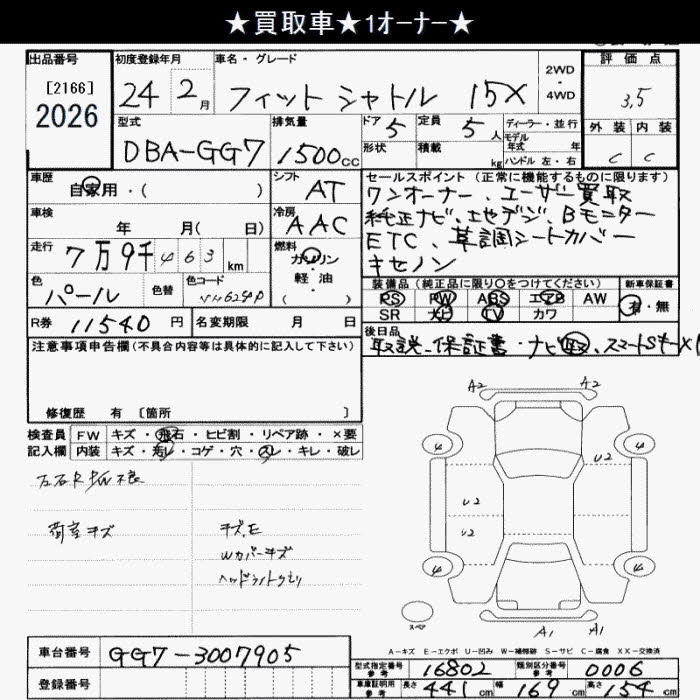 ★買取車★1オーナー★
出品番号
[2166]
2026
初度登録年月
24 2月
車名・グレード
フィットシャトル 15X
2WD
・
4WD
評価点
3.5
外装 内装
C C
型式
DBA-GG7
排気量
1500cc
ドア 5
定員 5人
形状
積載 kg
ディーラー・並行
モデル
年式 年
ハンドル 左・右
車歴
自家用・( )
シフト
AT
車検
年 月( 日)
冷房
AAC
走行
7万9千463km
燃料
ガソリン
・
軽油
( )
色
パール
色替
色コード
NH624P
R券 11540円
名変期限 月 日
セールスポイント(正常に機能するものに限ります)
ワンオーナー、ユーザー買取
純正ナビ、地デジ、Bモニター
ETC、革調シートカバー
キセノン
装備品(純正品に限り○をつけてください)
PS PW ABS エアB AW
SR ナビ TV カワ
新車保証書
有・無
後日品
取説、保証書・ナビ取、スマートSキーX1
注意事項申告欄(不具合内容等は具体的に記入して下さい)
修復歴 有 〔箇所 〕
検査員
記入欄
FW キズ・飛石・ヒビ割・リペア跡・×要
内装 キズ・汚レ・コゲ・穴・スレ・キレ・破レ
左右R P/W不良
荷室キズ
キズ、E
Wカバーキズ
ヘッドライトクモリ
A2 A2
4 4
U2
U2
U2
4 4
スペア
A1 A1
A-キズ E-エクボ U-凹み W-補修跡 S-サビ C-腐食 XX-交換済
車台番号 GG7-3007905
登録番号
型式指定番号
参考
16802
類別区分番号
参考
0006
車庫証明用
参考
長さ 441cm 幅 169cm 高さ 154cm